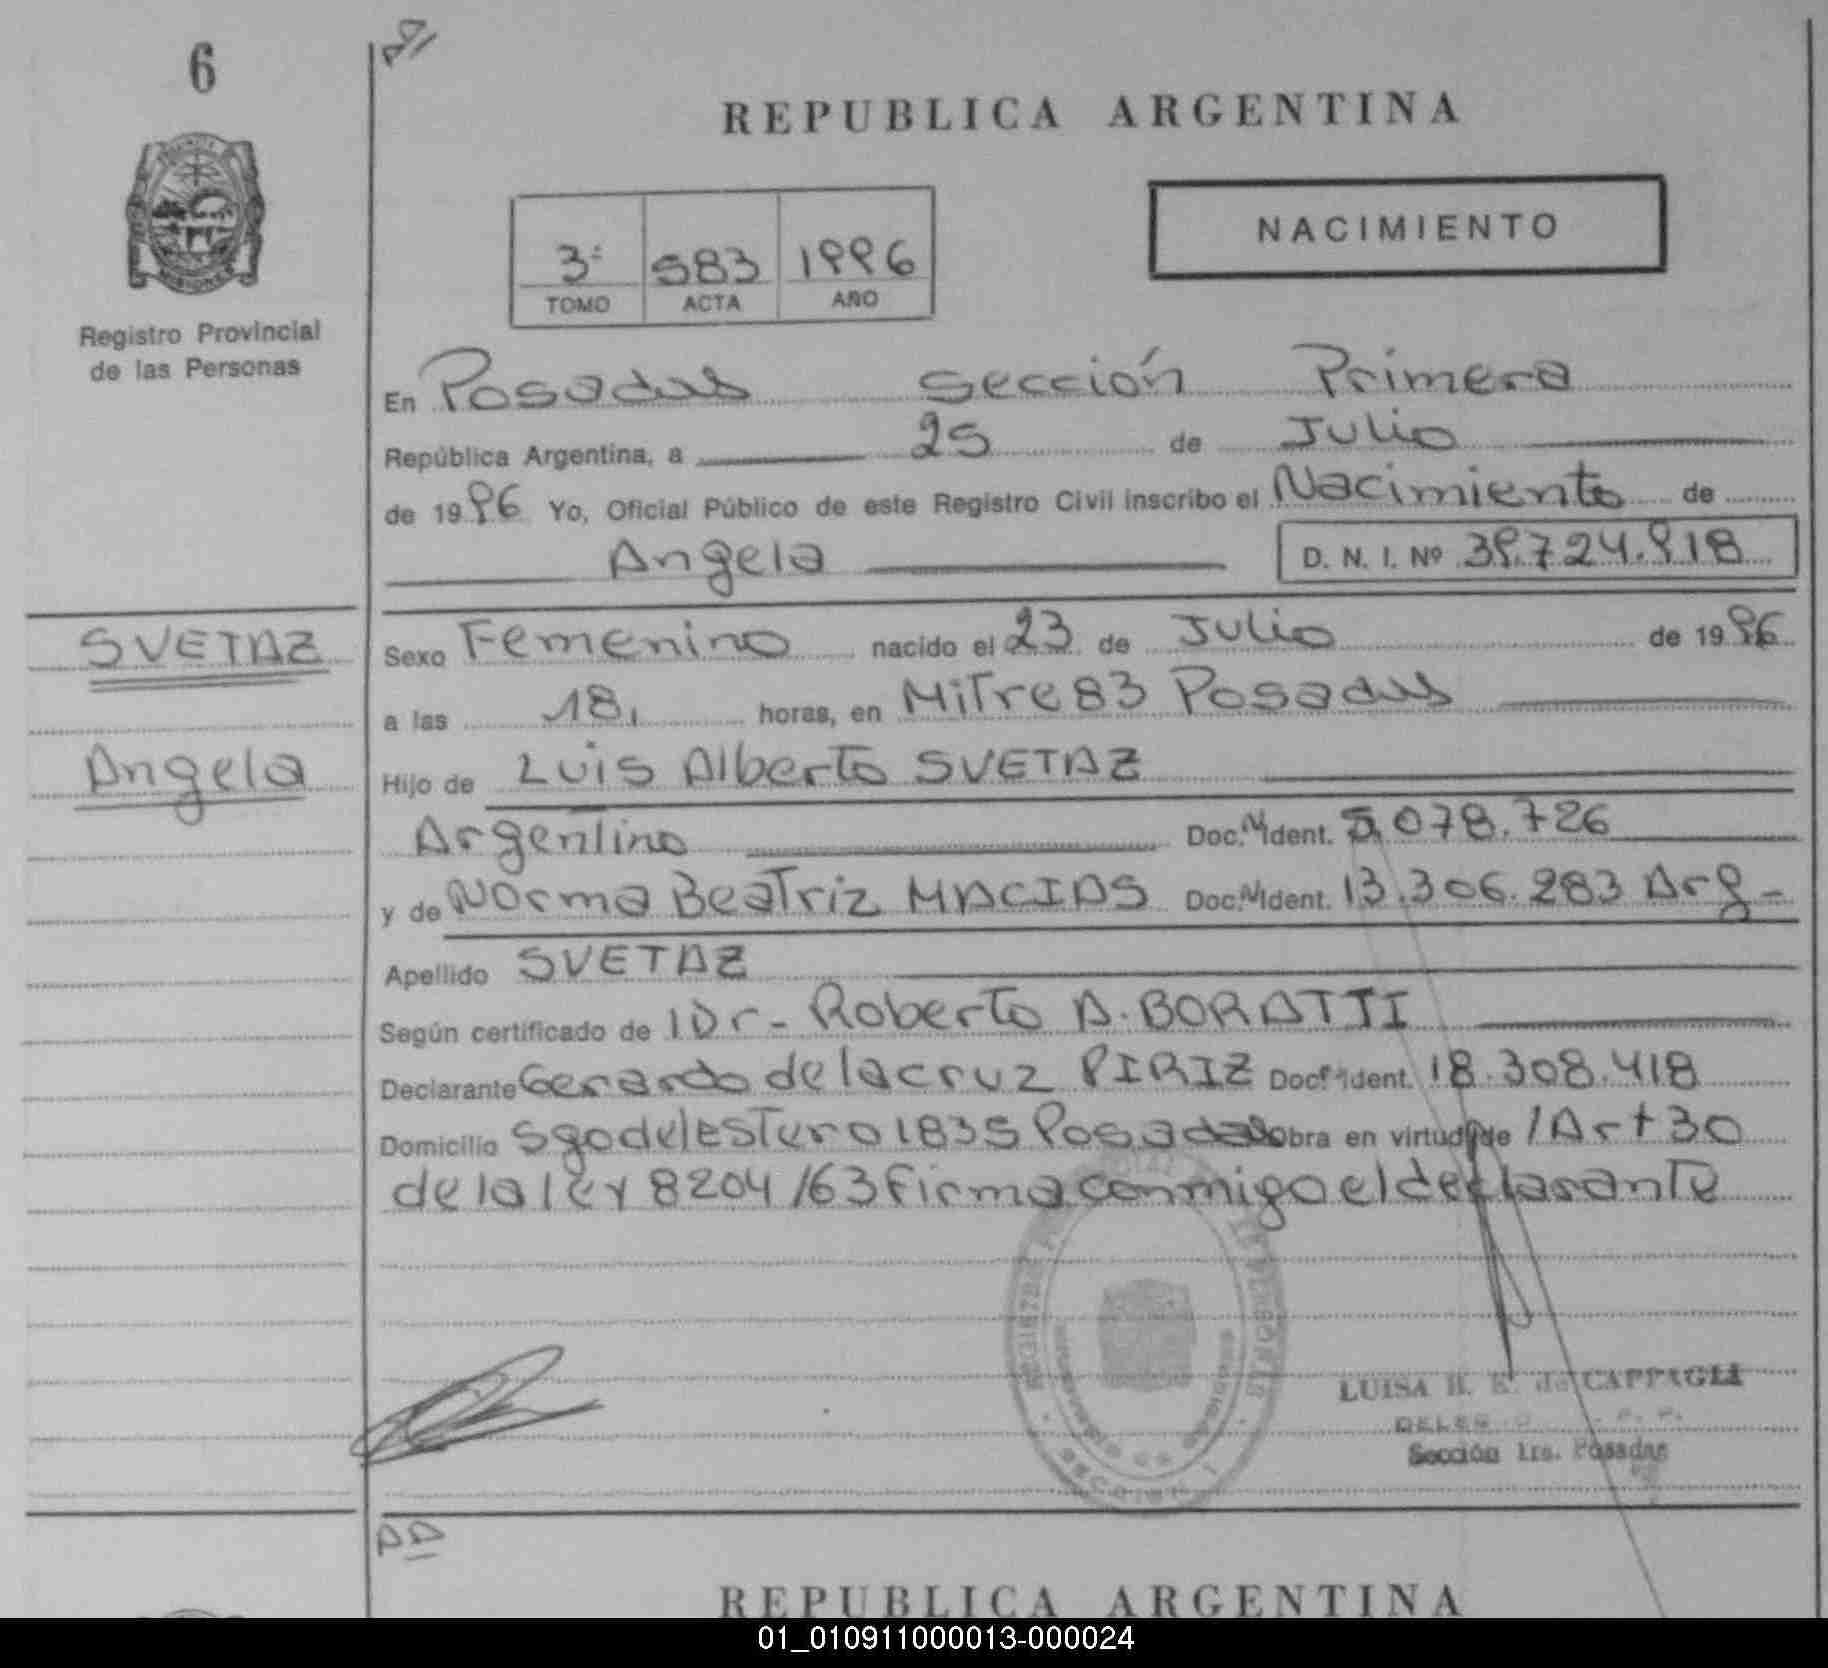 6
REPUBLICA ARGENTINA
NACIMIENTO
3ª 583 1996
TOMO ACTA AÑO
Registro Provincial
de las Personas
En Posadas Sección Primera
República Argentina, a 25 de Julio
de 1996 Yo, Oficial Público de este Registro Civil inscribo el Nacimiento de
Angela D. N. I. Nº 39.724.918
SVETAZ
Sexo Femenino nacido el 23 de Julio de 1996
a las 18, horas, en Mitre 83 Posadas
Angela
Hijo de Luis Alberto SVETAZ
Argentino Doc. N Ident. 5.078.726
y de Norma Beatriz MACIAS Doc. N Ident. 13.306.283 Arg-
Apellido SVETAZ
Según certificado de l Dr- Roberto A. BORATTI
Declarante Gerardo de la cruz PIRIZ Doc. Ident. 18.308.418
Domicilio Sgo del Estero 1835 Posadas obra en virtud de l Art 30
de la ley 8204/63 firma conmigo el declarante
LUISA H. E. de CAPPAGLI
Sección 1ra. Posadas
REPUBLICA ARGENTINA
01_010911000013-000024